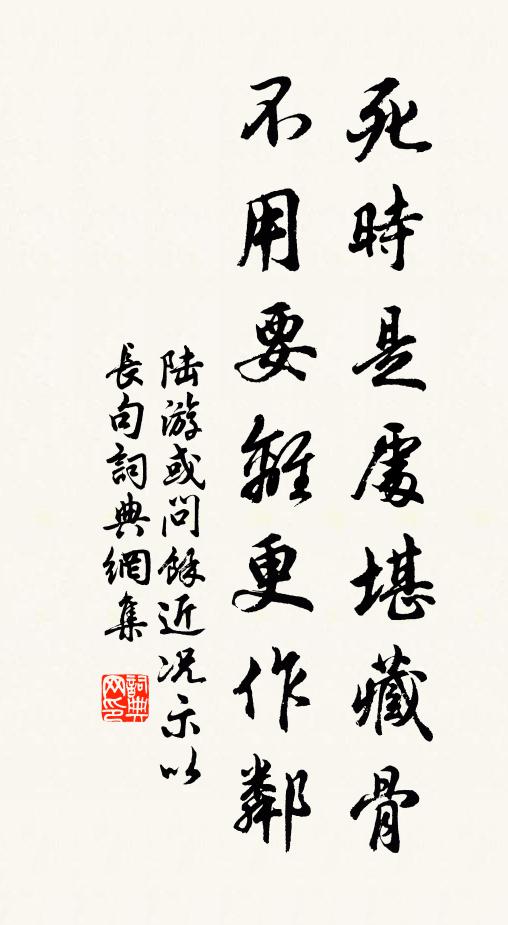 死時是處堪藏骨
不用要離更作鄰
陸游或問餘近況示以
長句詞典網集
詞典
网印